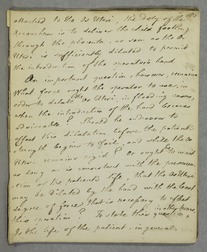 attached to the Os Uteri, the duty of the
Accoucheur is to deliver the child footling
through the placenta, as soon as the Os
Uteri is sufficiently dilated to permit
the introduction of the operator's hand
An important question, however, remains
What force ought the operator to use, in
order to dilate the Os Uteri, in flooding cases,
when the introduction of the hand becomes
advisable? Should he endeavor to
effect this dilatation before the patient's
strength begins to fail, and while the Os
Uteri remains rigid? Or ought he to wait
as long as is consistent with the preservation
of the patient's life, that the Os Uteri
may be dilated by the hand with the least
degree of force that is necessary to effect
this question? To state this question
Is the life of the patient, in general,